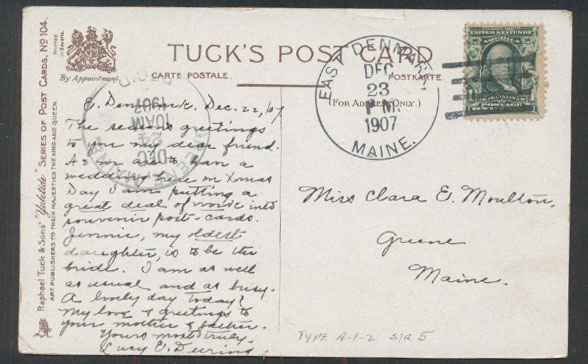 Raphael Tuck & Sons' "Yuletide" Series of Post Cards, No 104.
ART PUBLISHERS TO THEIR MAJESTIES THE KING AND QUEEN.
By Appointment.
TUCK'S POST CARD
CARTE POSTALE.
POSTKARTE.
(FOR ADDRESS ONLY.)
EAST DENMARK
DEC
23
P.M.
1907
MAINE.
DEC
24
10AM
1907
E. Denmark. Dec. 22, 07
The seasons greetings
to you my dear friend.
As we are to have a
wedding here on Xmas
Day I am putting a
great deal of work into
souvenir post-cards.
Jennie, my oldest
daughter, is to be the
bride. I am as well
as usual and as busy.
A lovely day today!
My love & greetings to
your mother &
Yours most truly,
Lucy E. Deering
Miss Clara E. Moulton,
Greene
Maine.
TYPE A-1-2 SIR 5